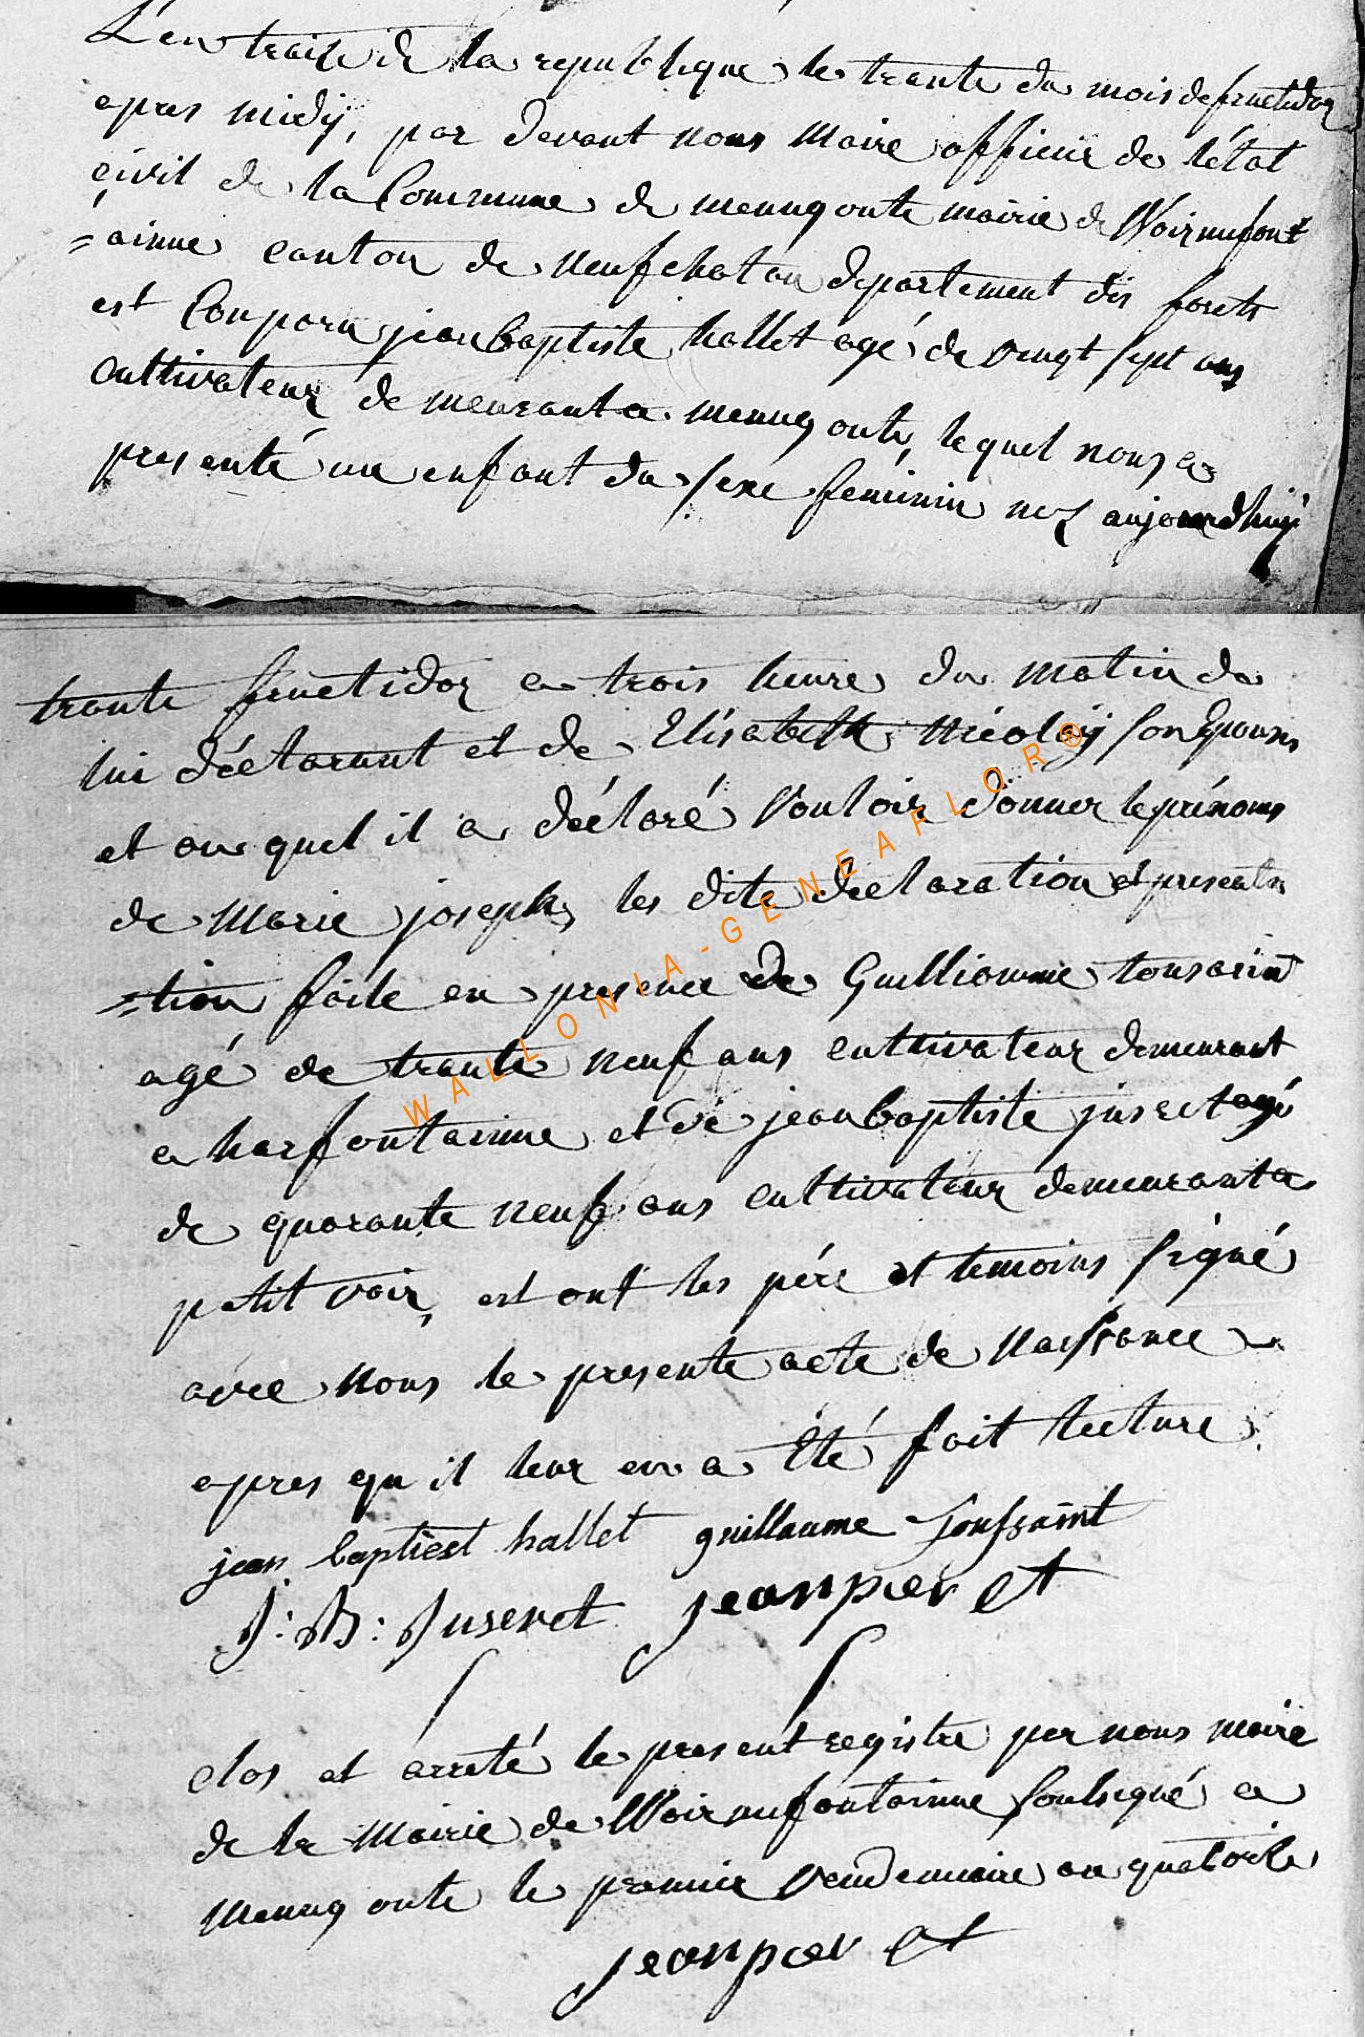 L'en traise de la republique le trante du mois de fructidor
apres midÿ, par devant nous maire officier de l'état
civil de la Commune de menugoute mairie de Woirnufont
=ainne canton de neufchatau departement dis forets
est Comparu jean baptiste hallet agé de vengt sept ans
cultivateur de meurant a menugoute, le quel nous a
presenté un enfant du sexe féminin nez aujourdhuÿ
trante fructidor a trois heure du matin de
lui déclarant et de Elisabeth Nicolaÿ son Epouse
et au quel il a déclaré vouloir donner le prénoms
de Marie joseph, les dite déclaration et presenta
=tion faite en presence de Guilliaume tousaint
agé de trante neuf ans cultivateur demeurant
a harfontainne et de jean baptiste juseret agé
de quarante neuf ans cultivateur demeurant a
petit voir, est ont les pére et temoins signé
avec nous le presente acte de naissance
apres qu il leur en a Eté fait lecture
jean baptiest hallet guillaume Toussaint
J: B: Juseret jeanpier et
clos et arreté le present registre par nous maire
de la Mairie de Woirnufontainne soulsigné a
menugoute le promier vendemiaire an quatorze
jeanpier et
WALLONIA-GENEAFLOR®